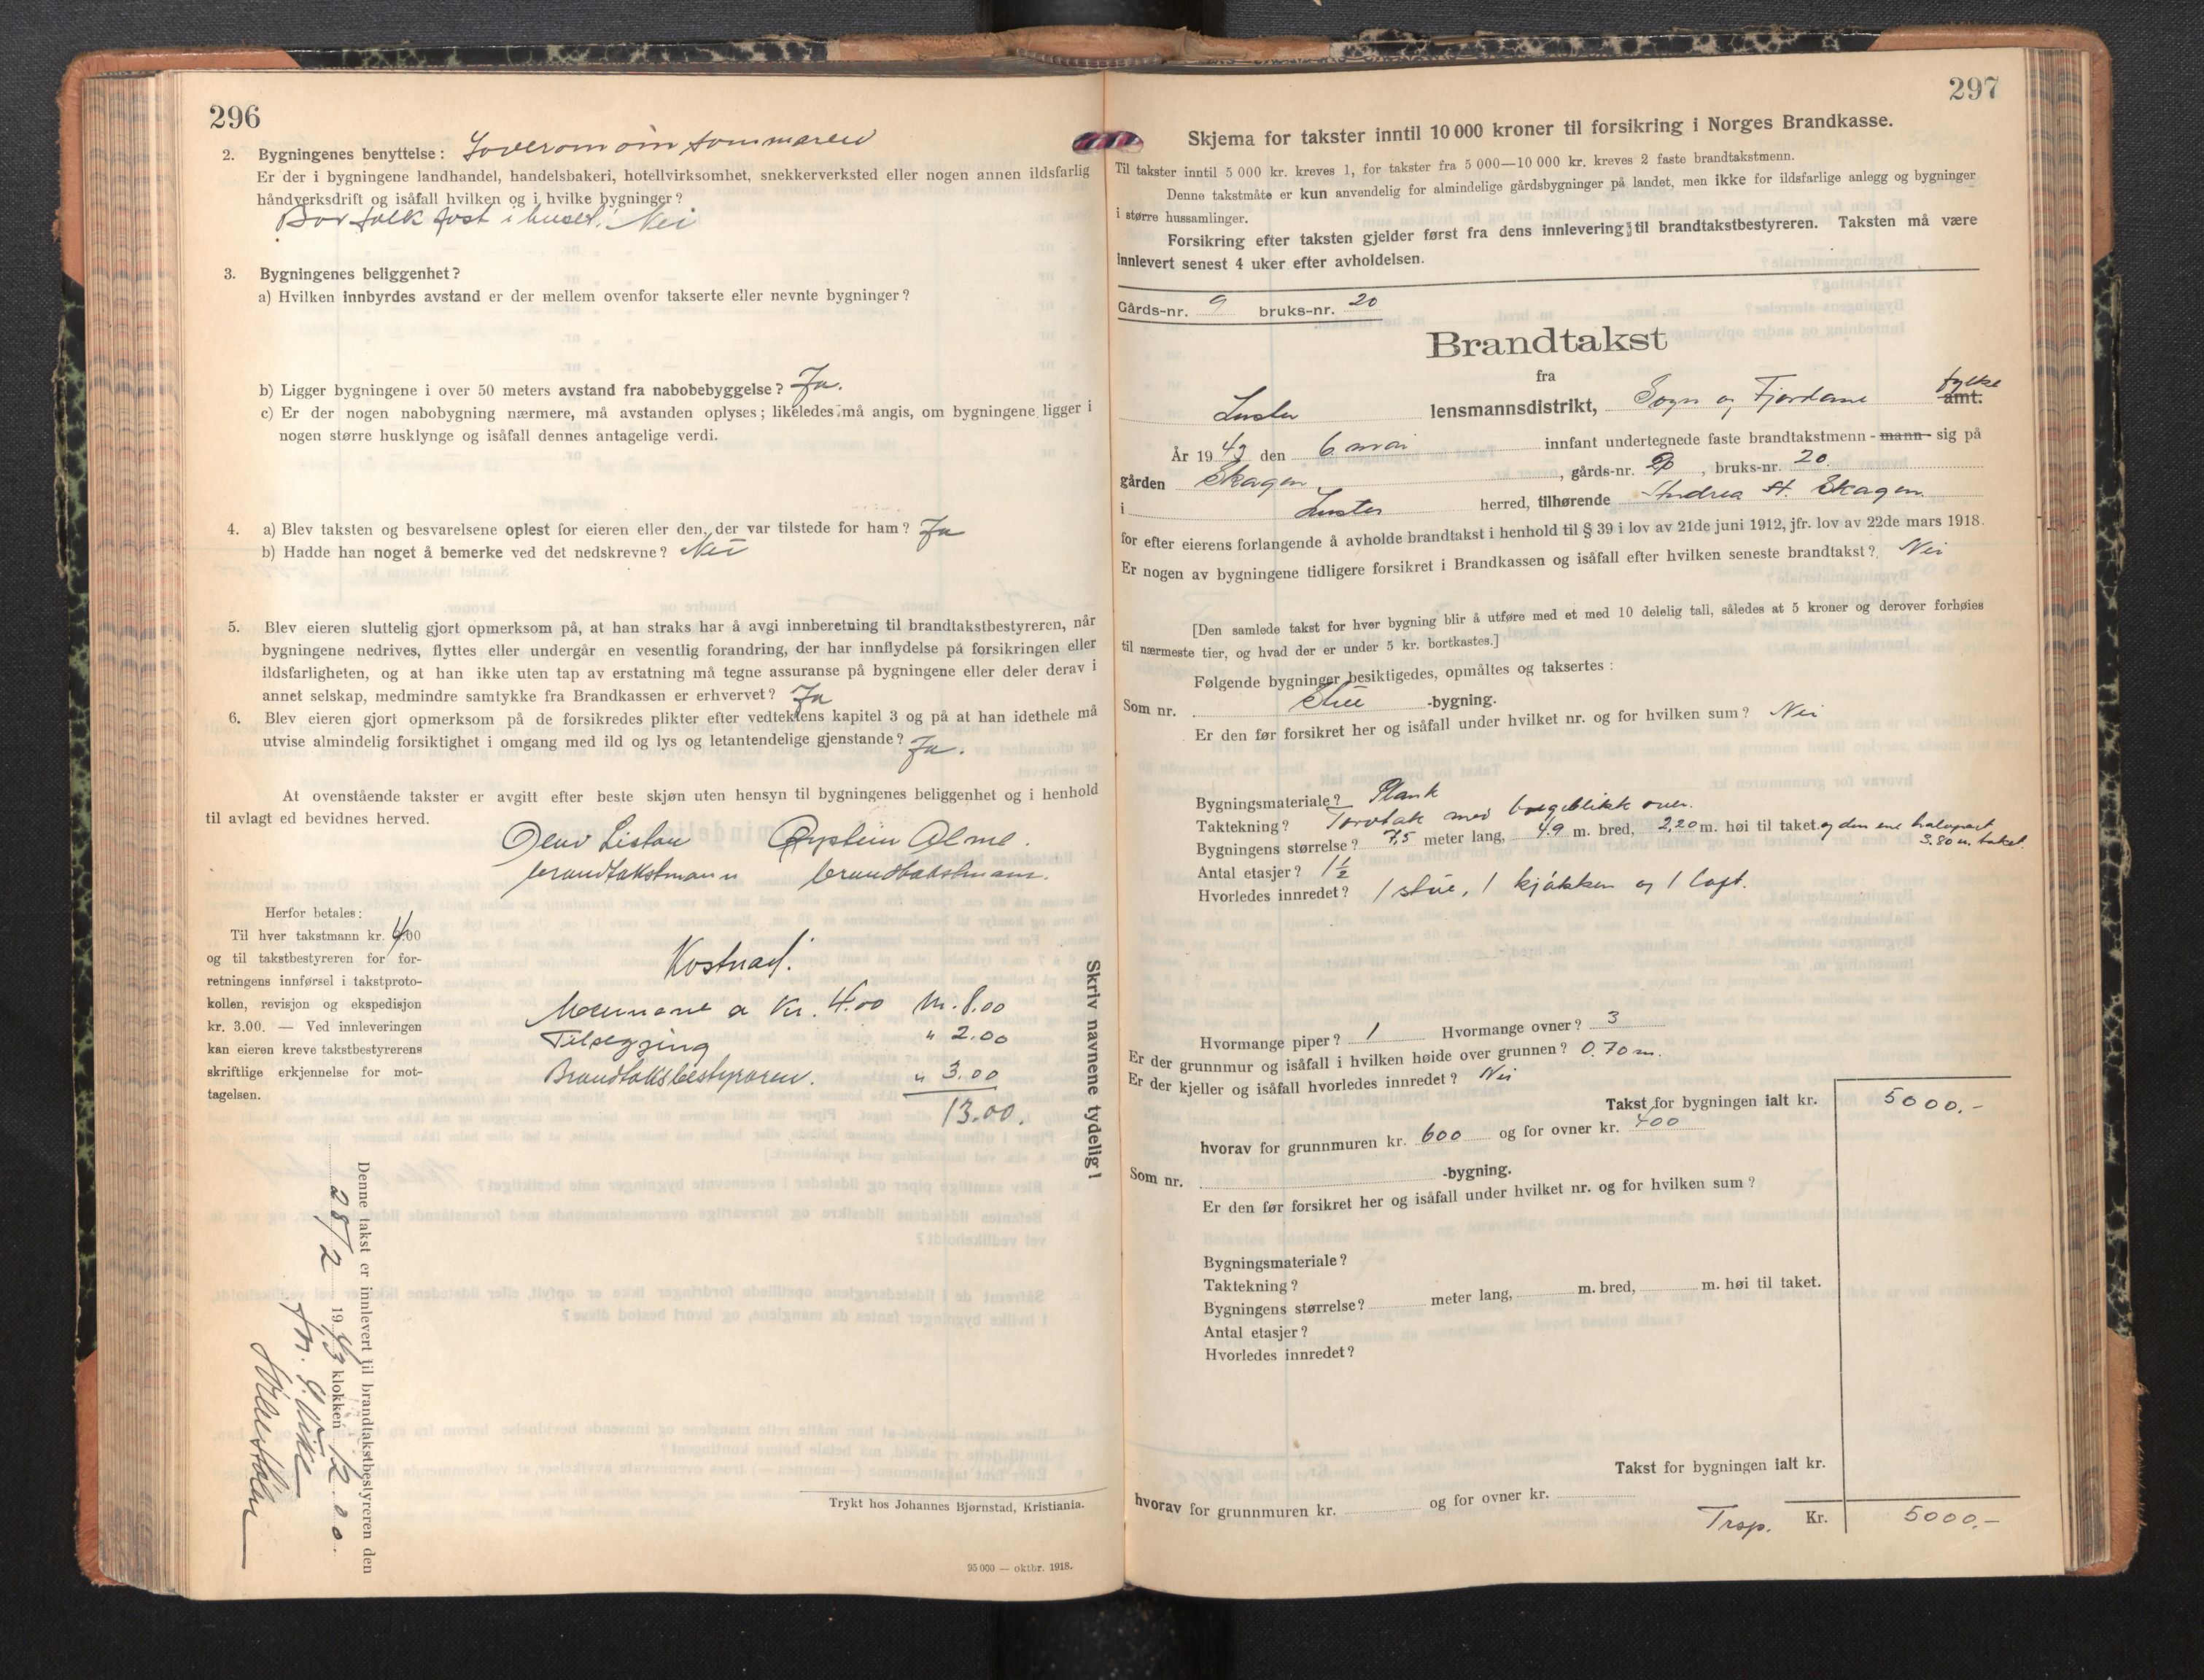 296
2. Bygningenes benyttelse: Soverom om sommaren
Er der i bygningene landhandel, handelsbakeri, hotellvirksomhet, snekkerverksted eller nogen annen ildsfarlig
håndverksdrift og isåfall hvilken og i hvilke bygninger?
Bor folk fast i huset? Nei
3. Bygningenes beliggenhet?
a) Hvilken innbyrdes avstand er der mellem ovenfor takserte eller nevnte bygninger?
b) Ligger bygningene i over 50 meters avstand fra nabobebyggelse? Ja.
c) Er der nogen nabobygning nærmere, må avstanden oplyses; likeledes må angis, om bygningene ligger i
nogen større husklynge og isåfall dennes antagelige verdi.
4. a) Blev taksten og besvarelsene oplest for eieren eller den, der var tilstede for ham? Ja
b) Hadde han noget å bemerke ved det nedskrevne? Nei
5. Blev eieren sluttelig gjort opmerksom på, at han straks har å avgi innberetning til brandtakstbestyreren, når
bygningene nedrives, flyttes eller undergår en vesentlig forandring, der har innflydelse på forsikringen eller
ildsfarligheten, og at han ikke uten tap av erstatning må tegne assuranse på bygningene eller deler derav i
annet selskap, medmindre samtykke fra Brandkassen er erhvervet? Ja
6. Blev eieren gjort opmerksom på de forsikredes plikter efter vedtektens kapitel 3 og på at han idethele må
utvise almindelig forsiktighet i omgang med ild og lys og letantendelige gjenstande? Ja.
At ovenstående takster er avgitt efter beste skjøn uten hensyn til bygningenes beliggenhet og i henhold
til avlagt ed bevidnes herved.
Øystein Alme.
brandtakstmann brandtakstmann.
Herfor betales:
Til hver takstmann kr. 4.00
og til takstbestyreren for for-
retningens innførsel i takstproto-
kollen, revisjon og ekspedisjon
kr. 3.00. — Ved innleveringen
kan eieren kreve takstbestyrerens
skriftlige erkjennelse for mot-
tagelsen.
Kostnad.
Mennene a Kr. 4.00 Kr. 8.00
Tilsegging " 2.00
Brandtakstbestyraren. " 3.00
13.00.
Skriv navnene tydelig!
Denne takst er innlevert til brandtakstbestyreren den
28/2 1943 klokken 12.00.
Trykt hos Johannes Bjørnstad, Kristiania.
95 000 — oktbr. 1918.
297
Skjema for takster inntil 10 000 kroner til forsikring i Norges Brandkasse.
Til takster inntil 5 000 kr. kreves 1, for takster fra 5 000—10 000 kr. kreves 2 faste brandtakstmenn.
Denne takstmåte er kun anvendelig for almindelige gårdsbygninger på landet, men ikke for ildsfarlige anlegg og bygninger
i større hussamlinger.
Forsikring efter taksten gjelder først fra dens innlevering til brandtakstbestyreren. Taksten må være
innlevert senest 4 uker efter avholdelsen.
Gårds-nr. 9 bruks-nr. 20
Brandtakst
fra
Luster lensmannsdistrikt, Sogn og Fjordane fylke amt.
År 1943 den 6 mai innfant undertegnede faste brandtakstmenn - mann - sig på
gården Skagen, gårds-nr. 9, bruks-nr. 20.
i Luster herred, tilhørende Andrea H. Skagen
for efter eierens forlangende å avholde brandtakst i henhold til § 39 i lov av 21de juni 1912, jfr. lov av 22de mars 1918.
Er nogen av bygningene tidligere forsikret i Brandkassen og isåfall efter hvilken seneste brandtakst? Nei
[Den samlede takst for hver bygning blir å utføre med et med 10 delelig tall, således at 5 kroner og derover forhøies
til nærmeste tier, og hvad der er under 5 kr. bortkastes.]
Følgende bygninger besiktigedes, opmåltes og taksertes:
Som nr. Stue -bygning.
Er den før forsikret her og isåfall under hvilket nr. og for hvilken sum? Nei
Bygningsmateriale? Plank
Taktekning? Torvtak med bølgeblikk over.
Bygningens størrelse? 7,5 meter lang, 4.9 m. bred, 2,20 m. høi til taket. og den ene halvpart
3.80 m. taket.
Antal etasjer? 1½
Hvorledes innredet? 1 stue, 1 kjøkken og 1 loft.
Hvormange piper? 1 Hvormange ovner? 3
Er der grunnmur og isåfall i hvilken høide over grunnen? 0.70 m.
Er der kjeller og isåfall hvorledes innredet? Nei
Takst for bygningen ialt kr. 5000.-
hvorav for grunnmuren kr. 600 og for ovner kr. 400
Som nr. -bygning.
Er den før forsikret her og isåfall under hvilket nr. og for hvilken sum?
Bygningsmateriale?
Taktekning?
Bygningens størrelse? meter lang, m. bred, m. høi til taket.
Antal etasjer?
Hvorledes innredet?
Takst for bygningen ialt kr.
hvorav for grunnmuren kr. og for ovner kr.
Trsp. Kr. 5000.-